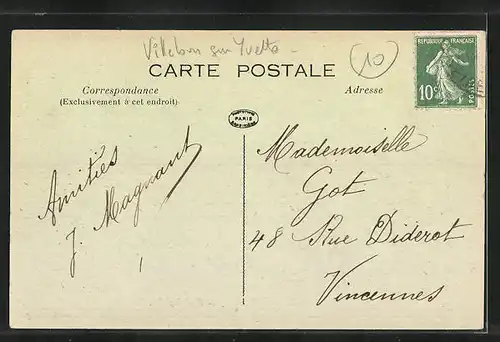 Villebon sur Yvette
10
CARTE POSTALE
Correspondance
(Exclusivement à cet endroit)
Adresse
PARIS
REPUBLIQUE FRANÇAISE
10c
POSTES
Amitiés
J. Magnant
Mademoiselle
Got
48 Rue Diderot
Vincennes